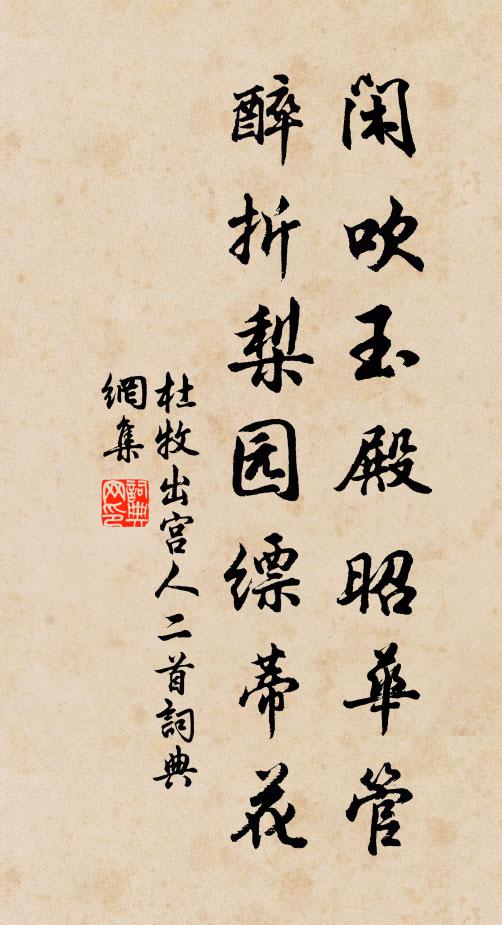 闲吹玉殿昭华管
醉折梨园缥蒂花
杜牧出宫人二首詞典
網集
詞典網印